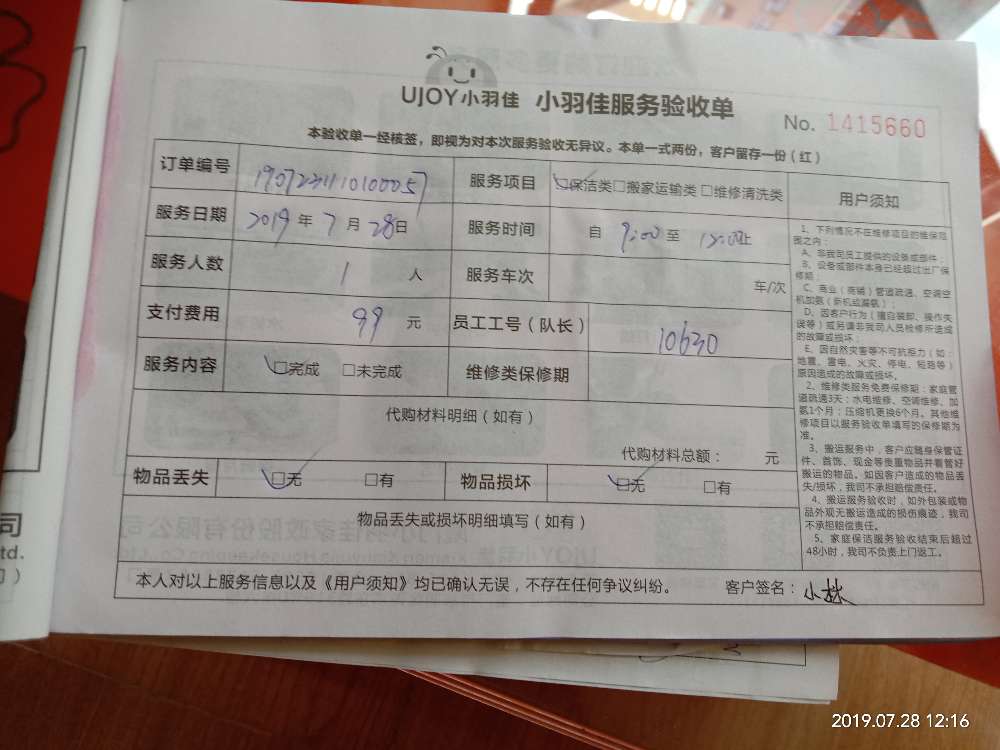 UJOY小羽佳 小羽佳服务验收单
No. 1415660
本验收单一经核签，即视为对本次服务验收无异议。本单一式两份，客户留存一份（红）
订单编号 服务项目 ☑保洁类□搬家运输类□维修清洗类
服务日期 2019年7月28日 服务时间 自 9:00 至 止
服务人数 1 人 服务车次 车/次
支付费用 99 元 员工工号（队长） 10630
服务内容 ☑完成 □未完成 维修类保修期
代购材料明细（如有）
代购材料总额： 元
物品丢失 ☑无 □有 物品损坏 ☑无 □有
物品丢失或损坏明细填写（如有）
本人对以上服务信息以及《用户须知》均已确认无误，不存在任何争议纠纷。 客户签名：小林
用户须知
1、下列情况不在维修项目的维保范
围之内：
A、非我司员工提供的设备或部件；
B、设备或部件本身已经超过出厂保
修期；
C、商业（商铺）管道疏通、空调空
机加氨（新机或漏氨）；
D、因客户行为（擅自装卸、操作失
误等）或另请非我司人员检修所造成
的故障或损坏；
E、因自然灾害等不可抗拒力（如：
地震、雷电、火灾、停电、短路等）
原因造成的故障或损坏。
2、维修类服务免费保修期：家庭管
道疏通3天；水电维修、空调维修、加
氨1个月；压缩机更换6个月。其他维
修项目以服务验收单填写的保修期为
准。
3、搬运服务中，客户应随身保管证
件、首饰、现金等贵重物品并看管好
搬运的物品。如因客户造成的物品丢
失/损坏，我司不承担赔偿责任。
4、搬运服务验收时，如外包装或物
品外观无搬运造成的损伤痕迹，我司
不承担赔偿责任。
5、家庭保洁服务验收结束后超过
48小时，我司不负责上门返工。
司
td.
2019.07.28 12:16